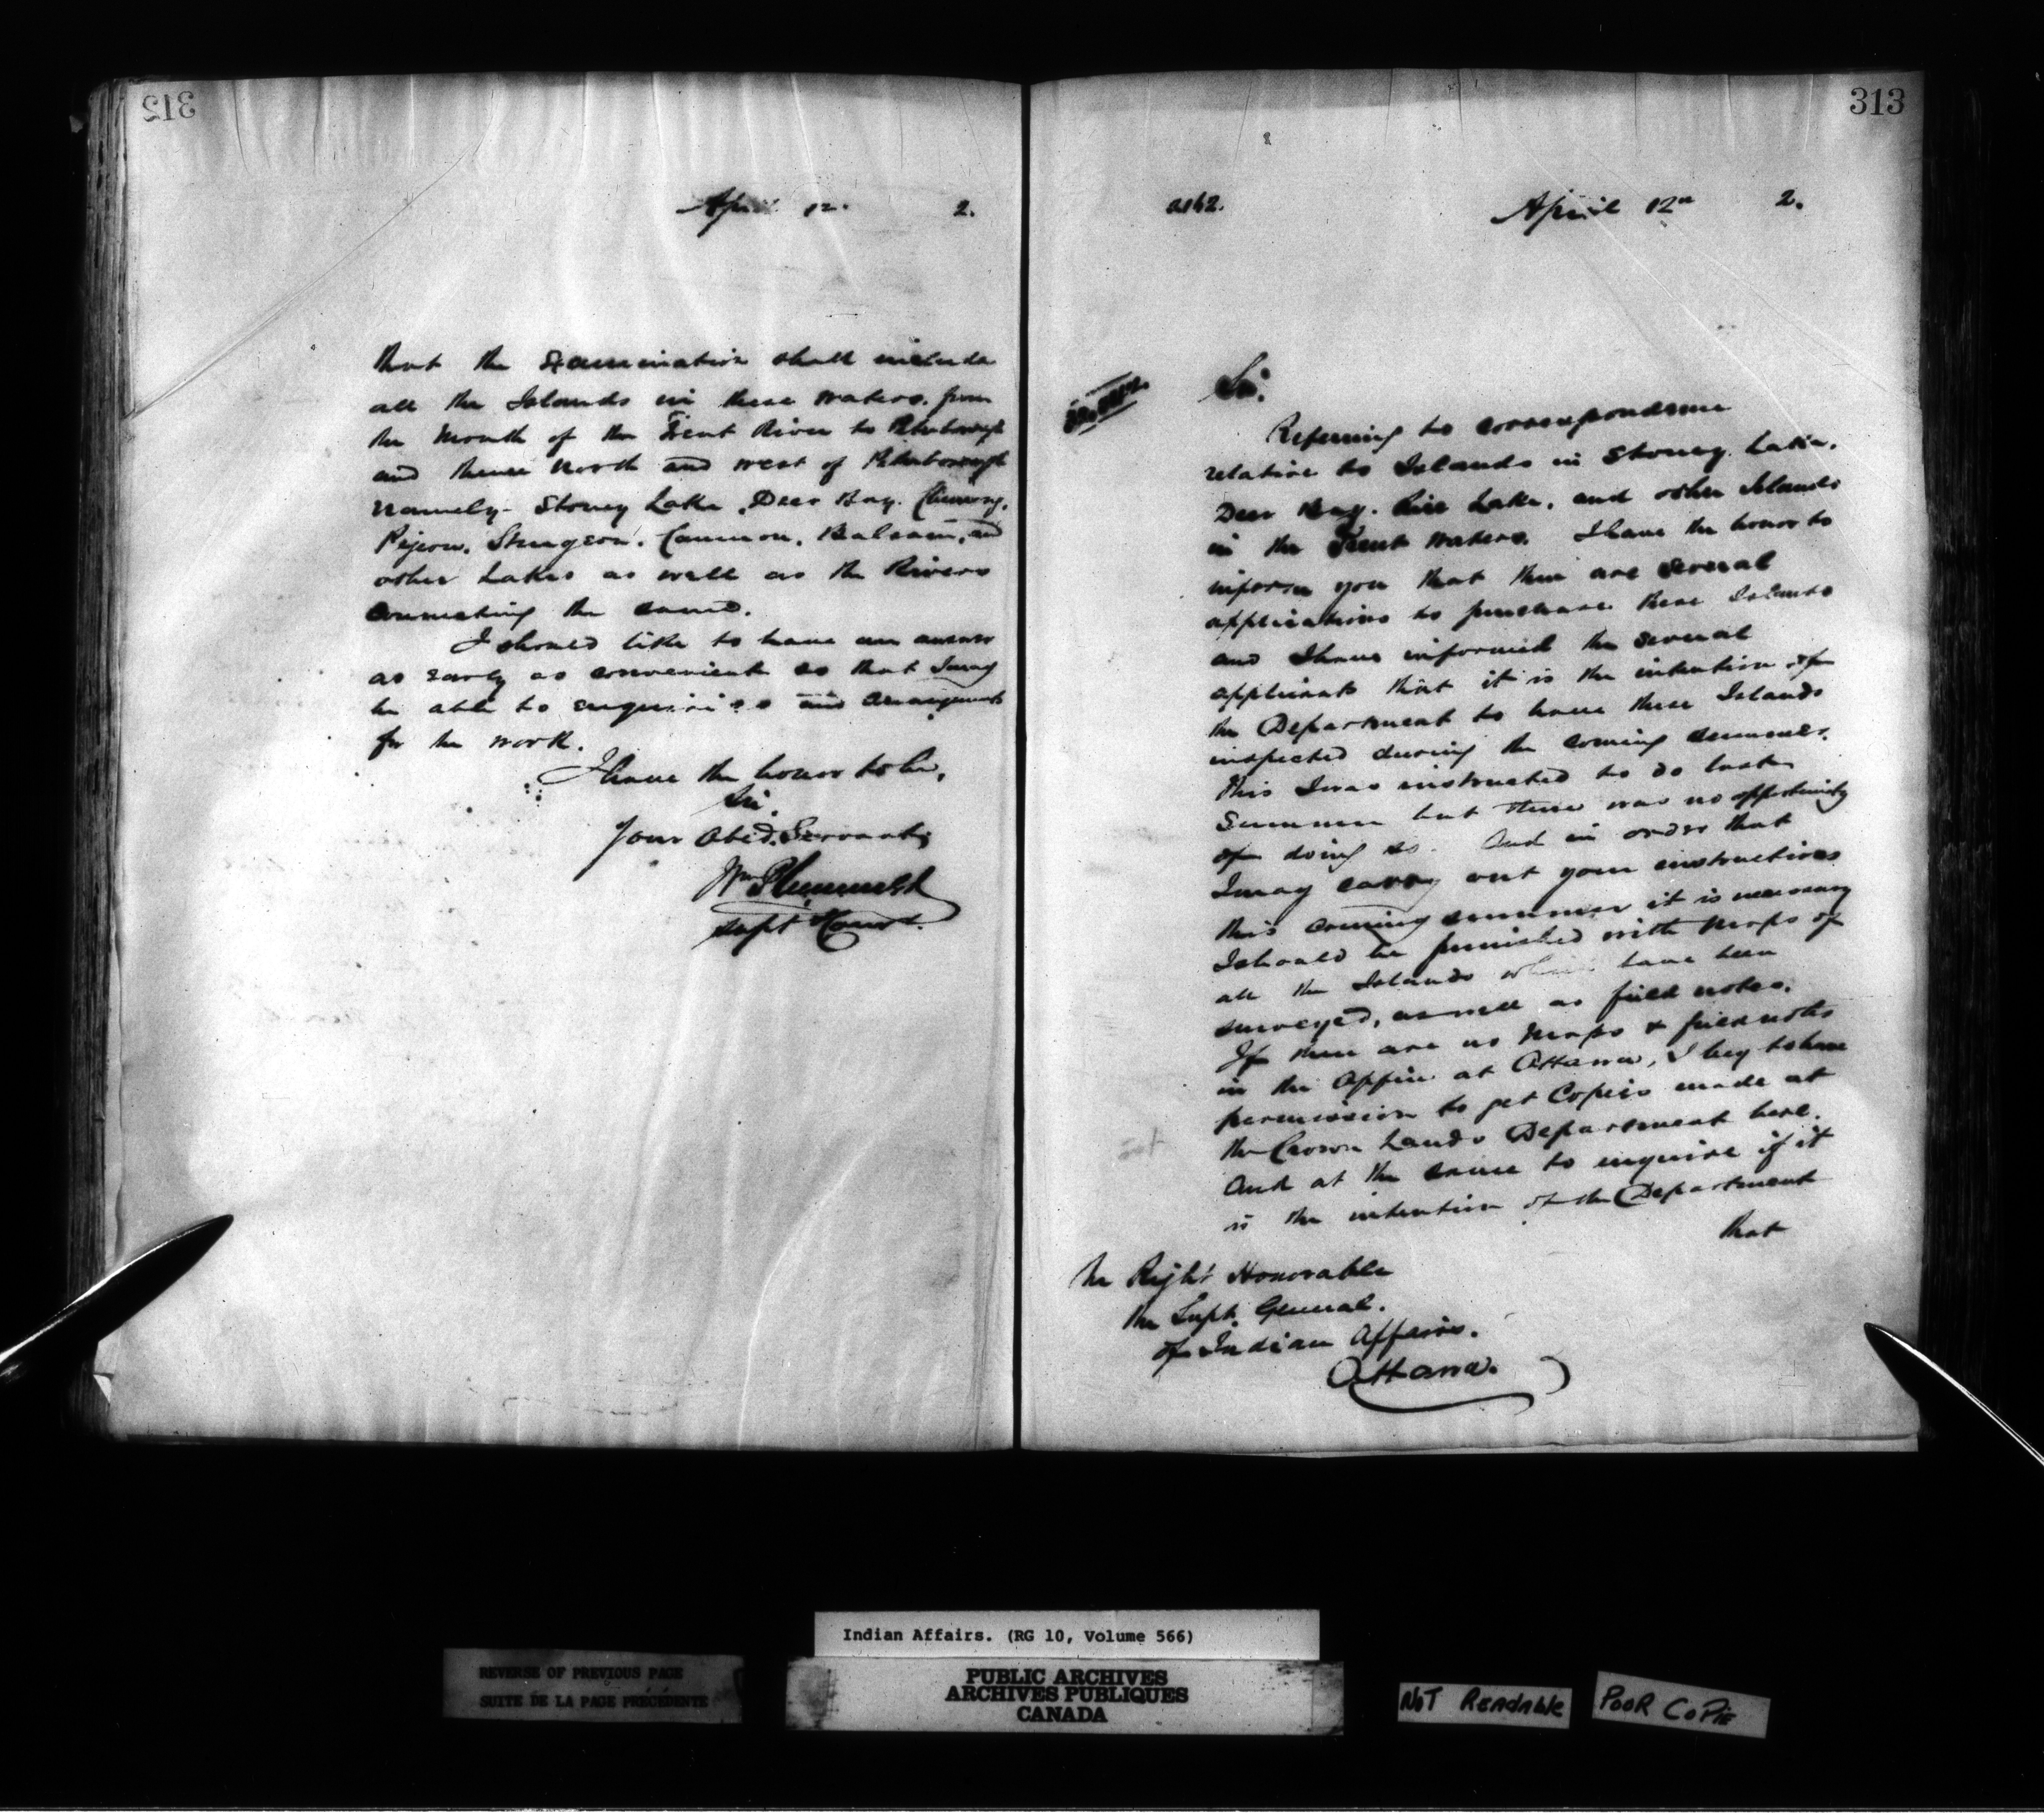 312
April 12. 2.
that the examination shall include
all the Islands in these waters, from
the Mouth of the Trent River to Peterborough
and thence North and west of Peterborough
namely - Stoney Lake, Deer Bay. Chemong,
Pigeon, Sturgeon, Cameron, Balsam, and
other Lakes as well as the Rivers
connecting the same.
I should like to have an answer
as early as convenient so that I may
be able to enquiries and arrangements
for the work.
I have the honor to be,
Sir.
Your Obed. Servant,
Wm Plummer
Supt Comr.
313
April 12th 2.
Sir:
Referring to correspondence
relative to Islands in Stoney Lake.
Deer Bay. Rice Lake, and other Islands
in the Trent Waters. I have the honor to
inform you that there are several
applications to purchase these Islands
and I have informed the several
applicants that it is the intention of
the Department to have these Islands
inspected during the coming summer.
This I was instructed to do last
summer but there was no opportunity
of doing so. And in order that
I may carry out your instructions
this coming summer it is necessary
I should be furnished with Maps of
all the Islands which have been
surveyed, as well as field notes.
If there are no Maps & field notes
in the Office at Ottawa, I beg to have
permission to get Copies made at
the Crown Lands Department here.
And at the same to enquire if it
is the intention of the Department
that
The Right Honorable
the Supt. General.
of Indian Affairs.
Ottawa.
Indian Affairs. (RG 10, Volume 566)
REVERSE OF PREVIOUS PAGE
SUITE DE LA PAGE PRÉCÉDENTE
PUBLIC ARCHIVES
ARCHIVES PUBLIQUES
CANADA
NOT READABLE
POOR COPIE